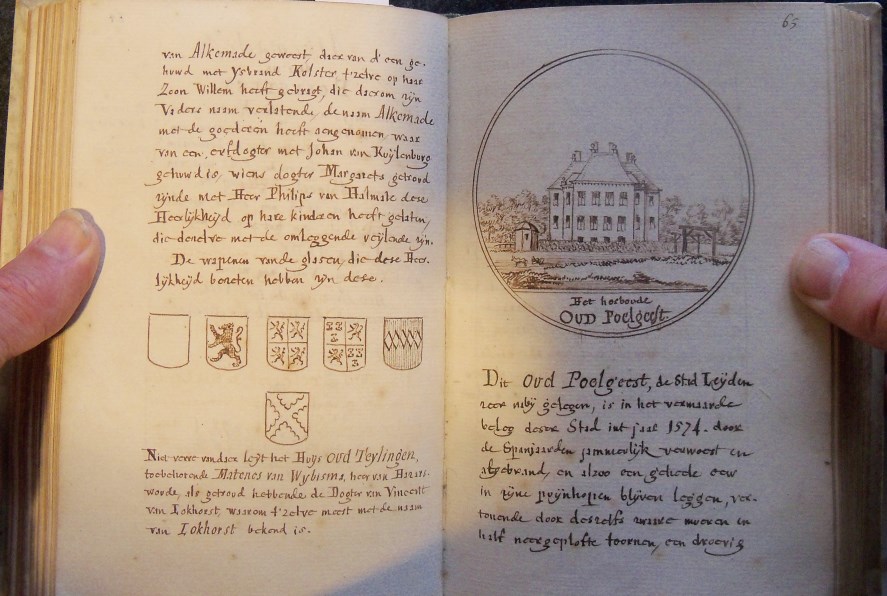 van Alkemade geweest, daer van d'een ge-
huwd met Ysbrand Kolster t'zelve op haar
Zoon Willem heeft gebragt, die daerom zijn
Vaders naam verlatende, de naam Alkemade
met de goederen heeft aengenomen, waar
van een erfdogter met Johan van Kuÿlenburg
gehuwd is, wiens dogter Margareta getroud
zijnde met Heer Philips van Halmale dese
Heerlijkheÿd op hare kinderen heeft gelaten,
die deselve met de omleggende veÿlende zijn.
De wapenen van de glasen, die dese Heer-
lijkheÿd bezeten hebben zijn dese.
Niet verre van daer leÿt het Huÿs Oud Teylingen,
toebehorende Matenes van Wybisma, heer van Hazars-
woude, als getroud hebbende de Dogter van Vincent
van Lokhorst, waarom t'zelve meest met de naam
van Lokhorst bekend is.
65
Het herboude
OUD Poelgeest.
Dit Oud Poelgeest, de Stad Leÿden
zeer nabÿ gelegen, is in het vermaarde
beleg deser Stad int jaar 1574. door
de Spanjaarden jammerlijk verwoest en
afgebrand, en alzoo een geheele eew
in zijne puÿnhopen blijven leggen, ver-
tonende door deszelfs zware mueren en
half neergeplofte toornen, een droevig